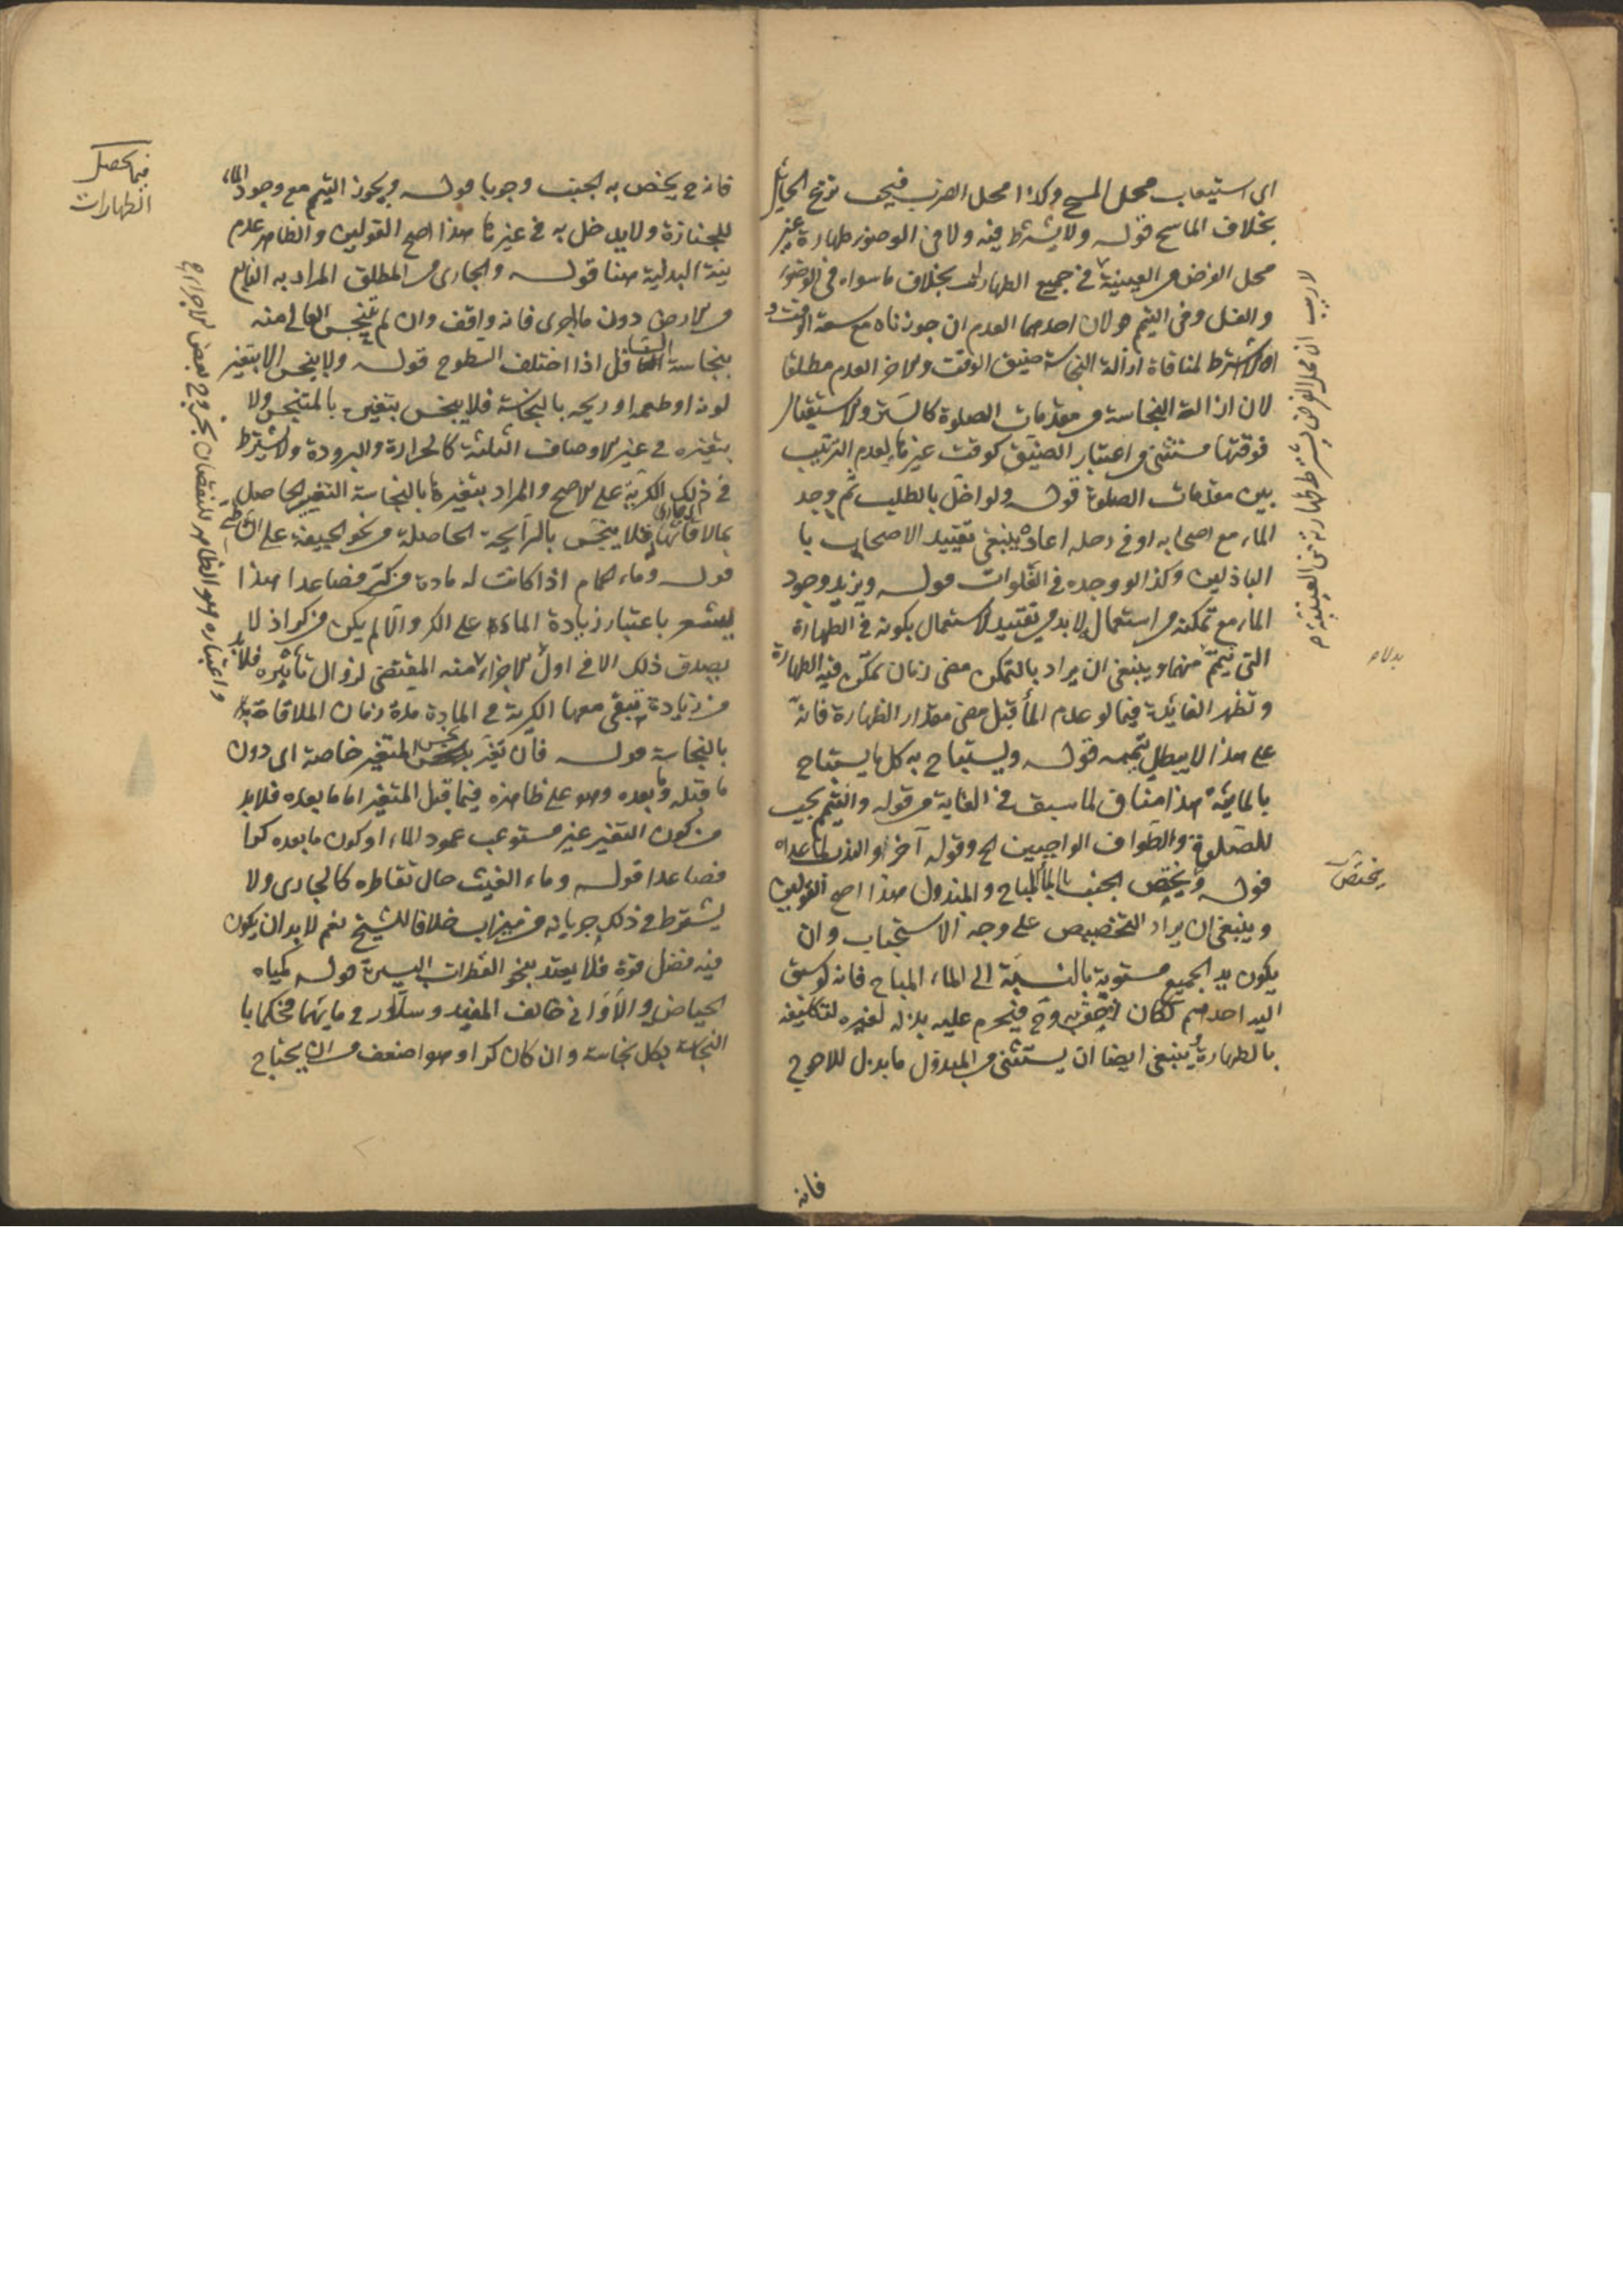 اى استيعاب محل المسح وكذا محل الضرب فيجب نزع الحايل
بخلاف الماسح قوله ولا يشترط فيه ولا فى الوضوء طهارة غير
محل الفرض من العينية فى جميع الطهارات بخلاف ما سواه فى الوضوء
والغسل وفى التيمم قولان احدهما العدم ان جوزناه مع سعة الوقت و
الا اشترط لمنافاة ازالة النجاسة ضيق الوقت والاخر العدم مطلقا
لان ازالة النجاسة من مقدمات الصلوة كالستر والاستقبال
فوقتها مستثنى من اعتبار الضيق كوقت غيرها لعدم الترتيب
بين مقدمات الصلوة قوله ولو اخل بالطلب ثم وجد
الماء مع اصحابه او فى رحله اعاد ينبغى تقييد الاصحاب با
الباذلين وكذا لو وجده فى الفلوات قوله ويزيد وجود
الماء مع تمكنه من استعماله لا بد من تقييد الاستعمال بكونه فى الطهارة
التى تيمم منها وينبغى ان يراد بالتمكن مضى زمان تمكن فيه الطهارة
وتظهر الفائدة فيما لو عدم الماء قبل مضى مقدار الطهارة فانه
على هذا لا يبطل تيممه قوله ويستباح به كل ما يستباح
بالمائية هذا مناف لما سبق فى الغاية من قوله والتيمم يجب
للصلوة والطواف الواجبين الخ وقوله آخرا والندب لما عداه
قوله ويختص الجنب بالماء المباح والمبذول هذا اصح القولين
وينبغى ان يراد التخصيص على وجه الاستحباب وان
يكون يد الجميع مستوية بالنسبة الى الماء المباح فانه لو سبق
اليه احدهم لكان احق به وح فيحرم عليه بذله لغيره لتكليفه
بالطهارة وينبغى ايضا ان يستثنى من المبذول ما بذل للاحوج
فانه
لا ريب ان محل الفرض يشترط طهارته من العينية
يختص
فانه ح يختص به الجنب وجوبا قوله ويجوز التيمم مع وجود الماء
للجنازة ولا يدخل به فى غيرها هذا اصح القولين والظاهر عدم
نية البدلية هنا قوله والجارى من المطلق المراد به النابع
من الارض دون ما اجرى فانه واقف وان لم ينجس العالى منه
بنجاسة السافل اذا اختلف السطوح قوله ولا ينجس الا بتغير
لونه او طعمه او ريحه بالنجاسة فلا ينجس بتغيره بالمتنجس ولا
بتغيره فى غير الاوصاف الثلثة كالحرارة والبرودة ولا يشترط
فى ذلك الكرية على الاصح والمراد بتغيره بالنجاسة التغيير الحاصل
بملاقاتها فلا ينجس بالرايحة الحاصلة من نحو الجيفة على الشاطئ
قوله وماء الحمام اذا كانت له مادة من كر فصاعدا هذا
يشعر باعتبار زيادة المادة على الكر والا لم يكن من كر اذ لا
يصدق ذلك الا فى اول الاجزاء منه المقتضى لزوال تاثيره فلا بد
من زيادة تبقى معها الكرية فى المادة مدة زمان الملاقاة
بالنجاسة قوله فان تغير بعضه نجس المتغير خاصة اى دون
ما قبله وما بعده وهو على ظاهره فيما قبل المتغير اما ما بعده فلا بد
من كون التغير غير مستوعب عمود الماء او كون ما بعده كرا
فصاعدا قوله وماء الغيث حال تقاطره كالجارى ولا
يشترط فى ذلك جريانه من ميزاب خلافا للشيخ نعم لا بد ان يكون
فيه فضل قوة فلا يعتد بنحو القطرات اليسيرة قوله كمياه
الحياض والاوانى خالف المفيد وسلار فى مائهما فحكما با
النجاسة بكل نجاسة وان كان كرا وهو اضعف من ان يحتاج
فيما يحصل
الطهارات
واعتباره هو الظاهر للنقصان بخروج بعض الاجزاء